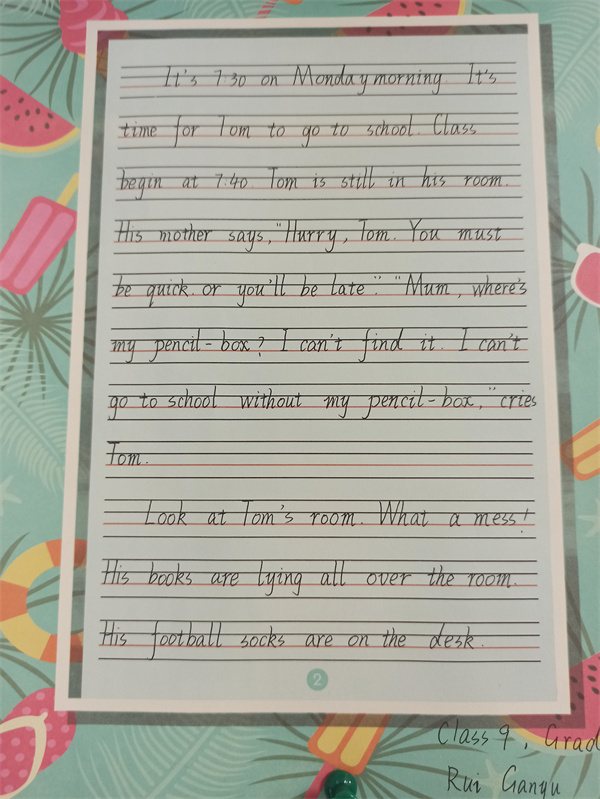 It's 7:30 on Monday morning. It's
time for Tom to go to school. Class
begin at 7:40. Tom is still in his room.
His mother says, "Hurry, Tom. You must
be quick. or you'll be late." "Mum, where's
my pencil-box? I can't find it. I can't
go to school without my pencil-box," cries
Tom.
Look at Tom's room. What a mess!
His books are lying all over the room.
His football socks are on the desk.
2
Class 9, Grad
Rui Ganyu